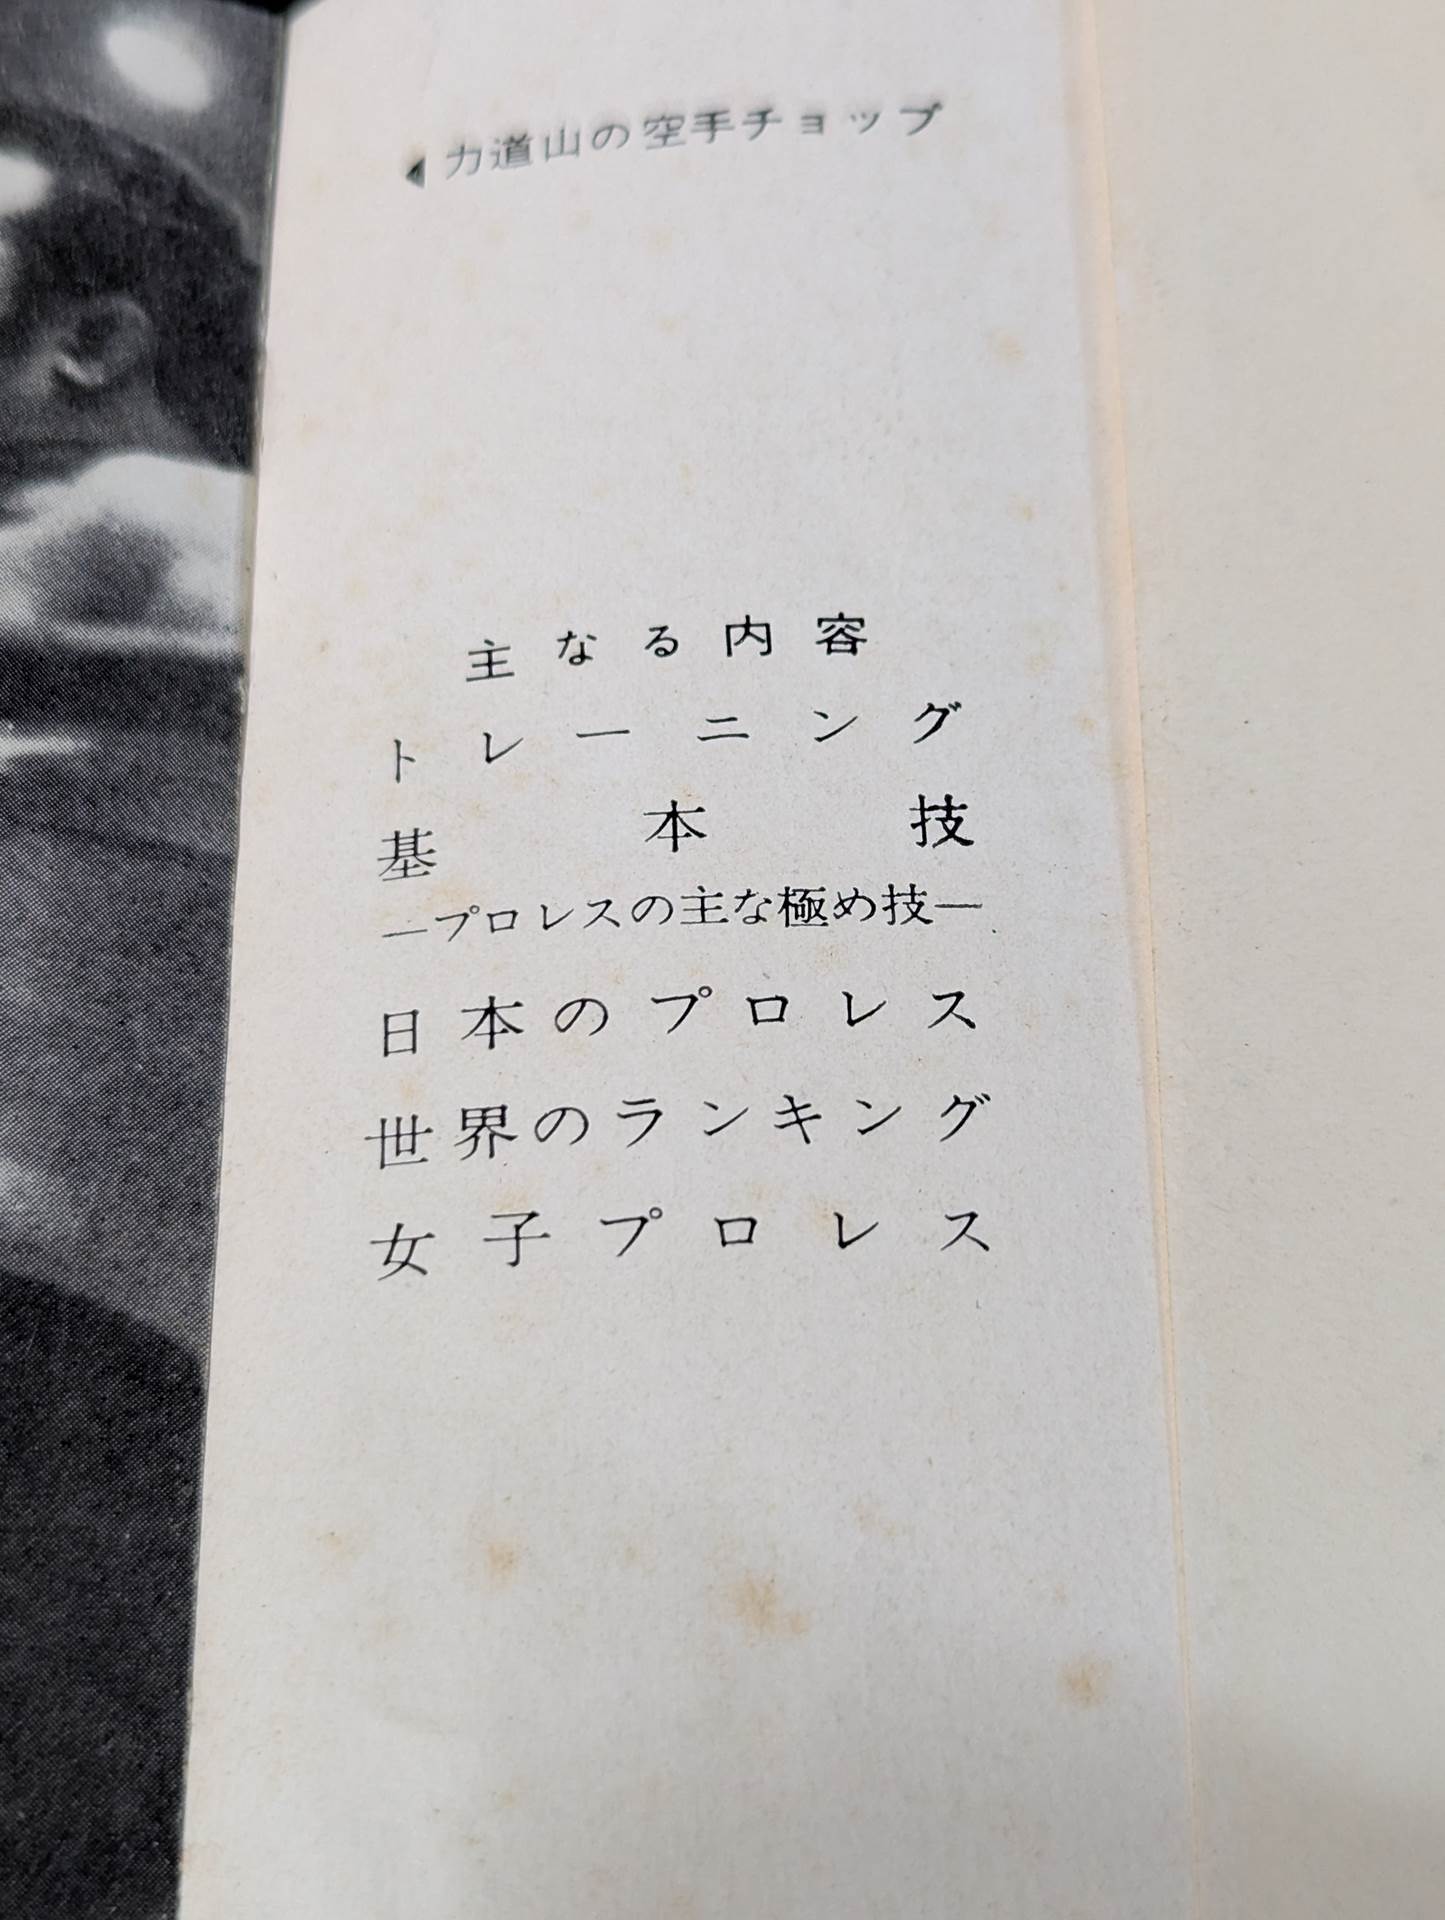 ◀力道山の空手チョップ
主なる内容
トレーニング
基本技
―プロレスの主な極め技―
日本のプロレス
世界のランキング
女子プロレス